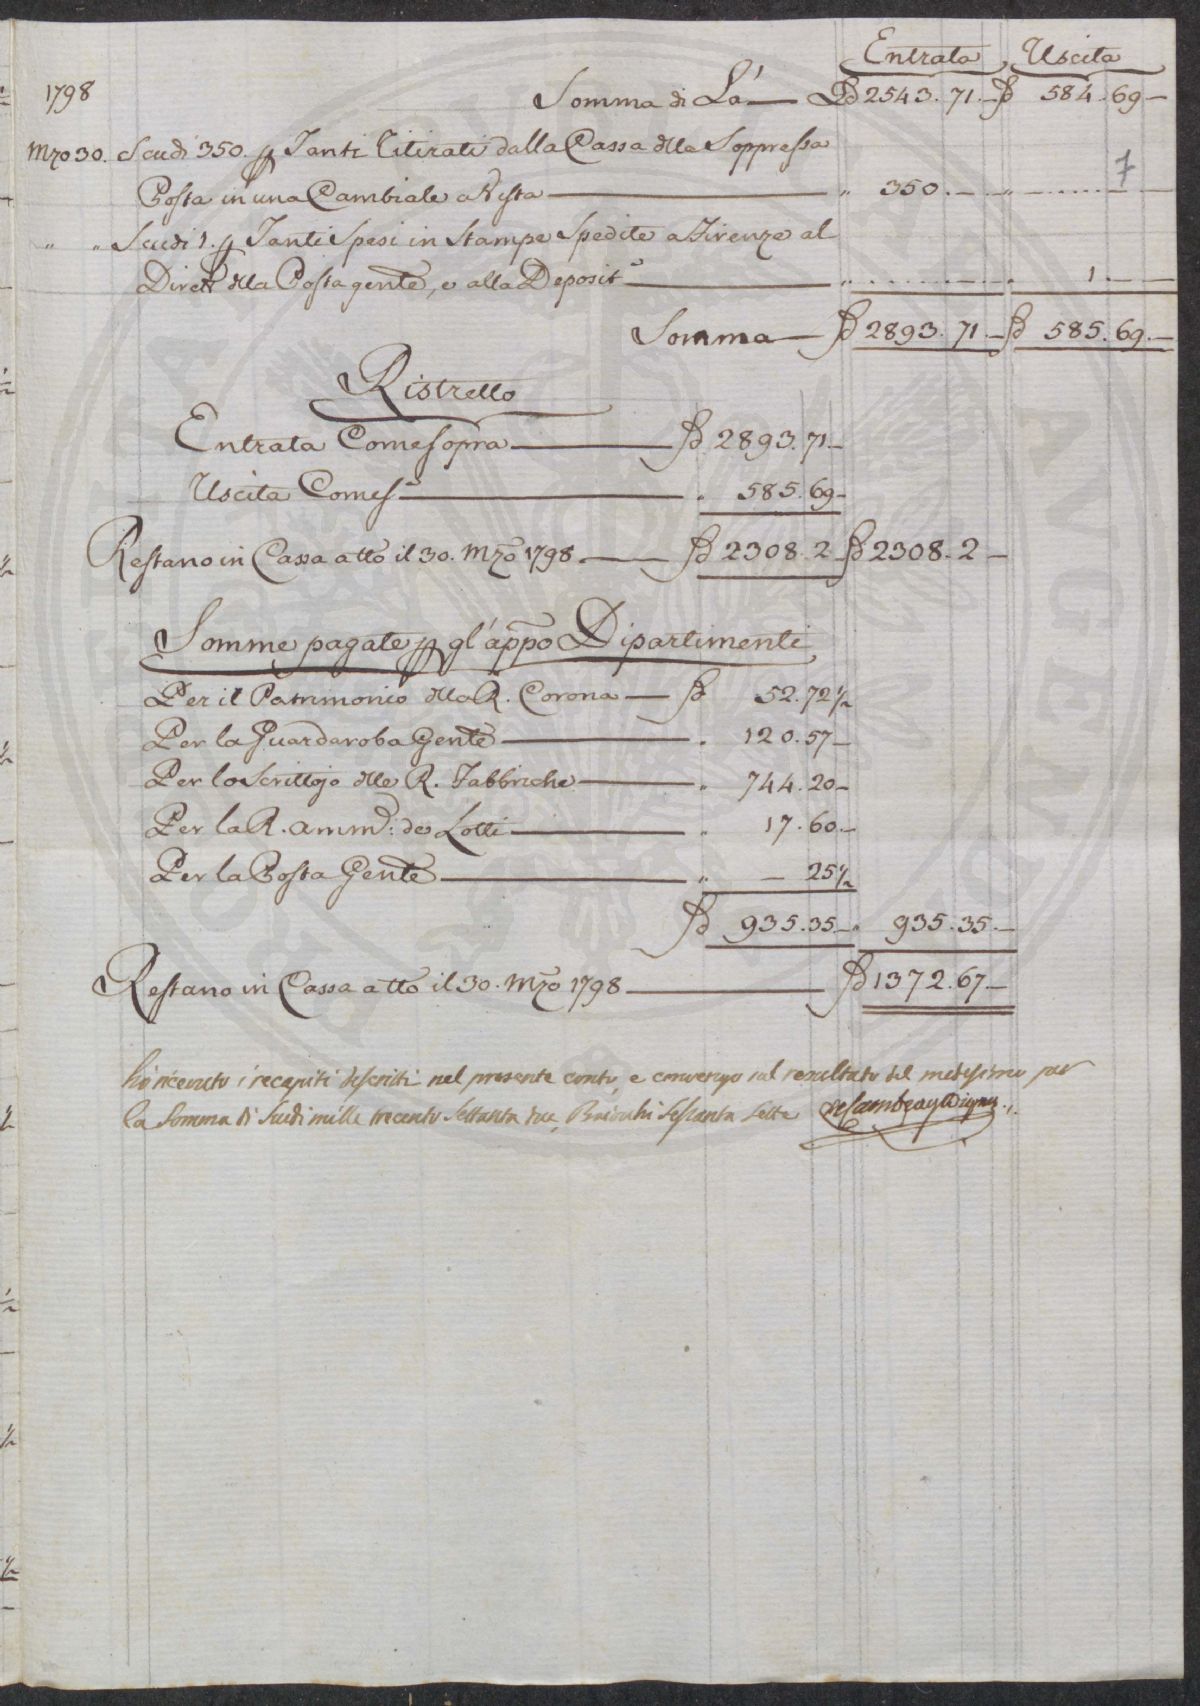 Entrata Uscita
1798 Somma di Là — ₯ 2543. 71. — ₯ 584. 69 —
Mzo 30. Scudi 350. p Tanti Titirati dalla Cassa dlla Soppressa
Posta in una Cambiale a Vista — " 350. — — " . . . . . . —
7
" " Scudi 1. p Tanti Spesi in Stampe Spedite a Firenze al
Direttr dlla Posta gente, e alla Deposita — " . . . . . . — " 1 — —
Somma — ₯ 2893. 71 — ₯ 585. 69. —
Ristretto
Entrata Come Sopra — ₯ 2893. 71 —
Uscita Comes.a — " 585. 69 —
Restano in Cassa a tto il 30. Mzo 1798. — ₯ 2308. 2 ₯ 2308. 2 —
Somme pagate p gl'appo Dipartimenti
Per il Patrimonio dlla R. Corona — ₯ 52. 72 ½
Per la Guardaroba Gente — " 120. 57 —
Per lo Scrittojo dlle R. Fabbriche — " 744. 20 —
Per la R. Ammne: de Lotti — " 17. 60. —
Per la Posta Gente — " — 25 ½
₯ 935. 35 — " 935. 35. —
Restano in Cassa a tto il 30. Mzo 1798 — ₯ 1372. 67 —
hò ricevuto i recapiti descritti nel presente conto, e convengo sul resultato del medesimo per
la Somma di Scudi mille trecento Settanta due, Baiocchi Sessanta Sette